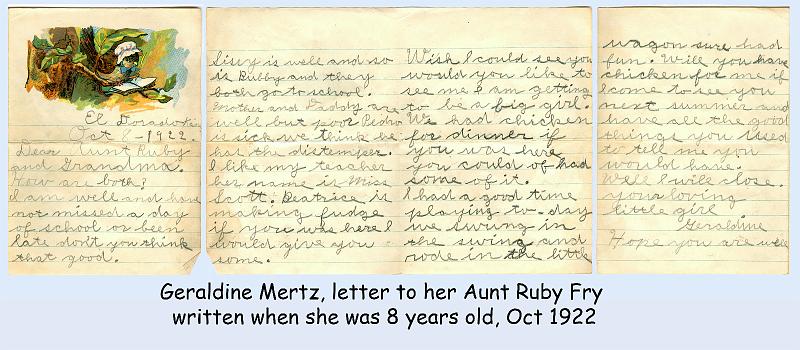 El Dorado
Oct 8-1922.
Dear Aunt Ruby
and Grandma.
How are both?
I am well and have
not missed a day
of school or been
late don't you think
that good.
Sissy is well and so
is Bubby and they
both go to school.
Mother and Daddy are
well but poor Pedro
is sick we think he
has the distemper.
I like my teacher
her name is Miss
Scott. Beatrice is
making fudge
if you was here I
would give you
some.
Wish I could see you
would you like to
see me I am getting
to be a big girl.
We had chicken
for dinner if
you was here
you could of had
some of it.
I had a good time
playing to-day
we swung in
the swing and
rode in the little
wagon sure had
fun. Will you have
chicken for me if
I come to see you
next summer and
have all the good
things you used
to tell me you
would have.
Well I will close.
your loving
little girl
Geraldine
Hope you are well
Geraldine Mertz, letter to her Aunt Ruby Fry
written when she was 8 years old, Oct 1922